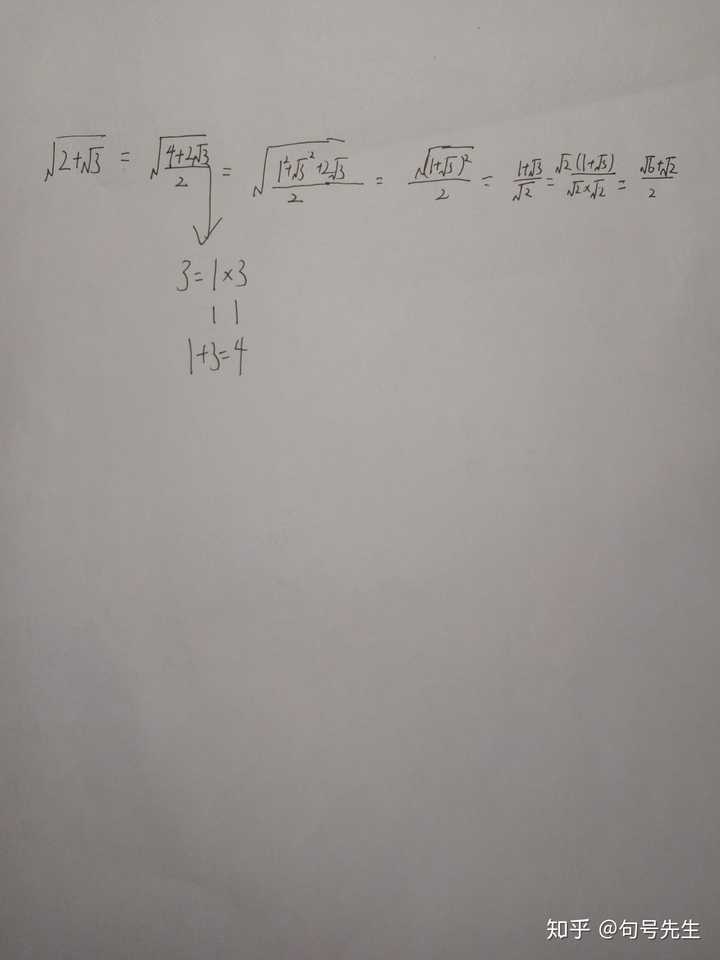 √(2+√3) = √((4+2√3)/2) = √((1²+√3²+2√3)/2) = √((1+√3)²)/2 = (1+√3)/√2 = √2(1+√3)/(√2×√2) = (√6+√2)/2
3=1×3
| |
1+3=4
知乎 @句号先生